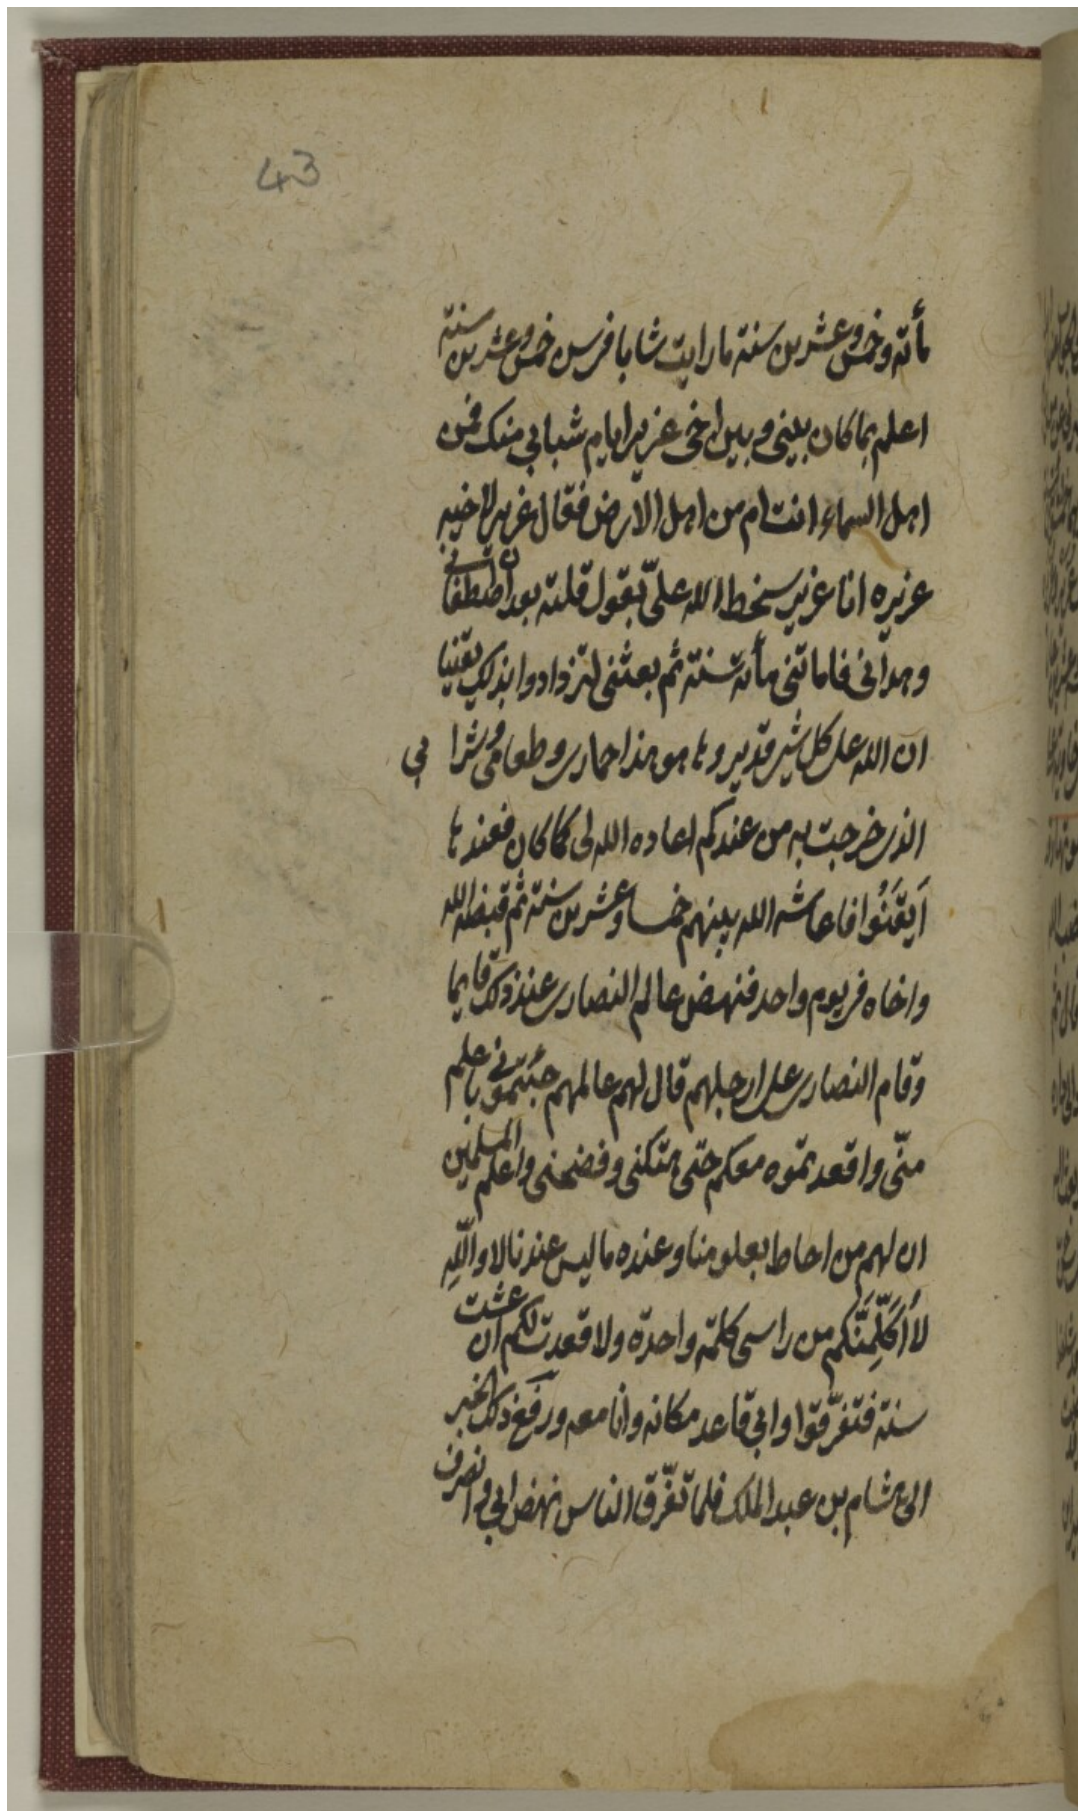 43
مأته وخمس وعشرين سنة ما رايت شابا في سن خمس وعشرين سنة
اعلم بما كان بيني وبين اخى عزير ايام شبابي منك فمن
اهل السماء انت ام من اهل الارض فقال عزير لاخيه
عزيره انا عزير سخط الله علىّ بقول قلته بعد ان اصطفاني
وهدانى فاماتنى مأته سنته ثم بعثنى لتزدادوا بذلك يقينا
ان الله على كل شئ قدير وها هو هذا حمارى وطعامى وشرابي
الذى خرجت به من عندكم اعاده الله لى كما كان فعندها
اَيقَنُوا فاعاشه الله بينهم خمسا وعشرين سنته ثم قبضه الله
واخاه فى يوم واحد فنهض عالم النصارى عند ذلك قايما
وقام النصارى على ارجلهم قال لهم عالمهم جئتمونى باعلم
منّى واقعدتموه معكم حتى هتكنى وفضحنى واعلم المسلمين
ان لهم من احاط بعلومنا وعنده ما ليس عندنا لا واللّهِ
لا اُكَلِّمَنَّكم من راسى كلمته واحدة ولا قعدت لكم ان عشت
سنته فتفرّقوا وابي قاعد مكانه وانا معه ورفع ذلك الخبر
الى هشام بن عبد الملك فلما تفرّق الناس نهض ابي وانصرف